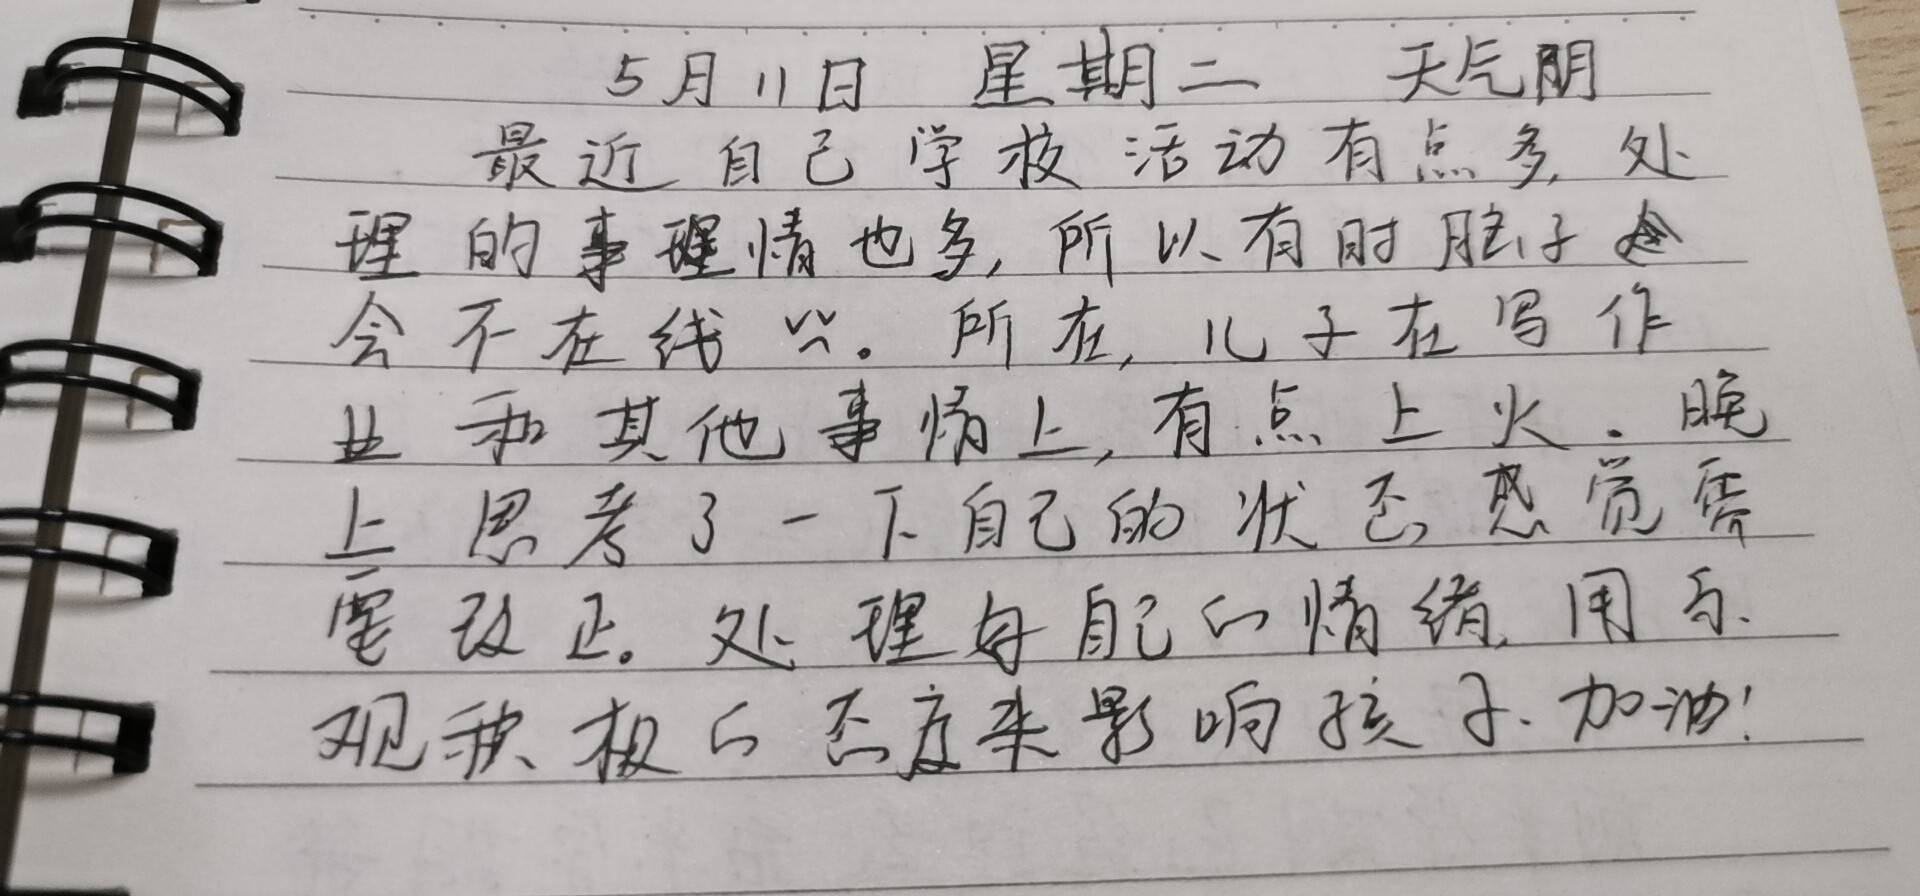 5月11日 星期二 天气阴
最近自己学校活动有点多,处
理的事理情也多,所以有时脑子
会不在线。所在,儿子在写作
业和其他事情上,有点上火.晚
上思考了一下自己的状态,感觉需
要改正。处理每自己的情绪,用乐
观积极的态度来影响孩子.加油!